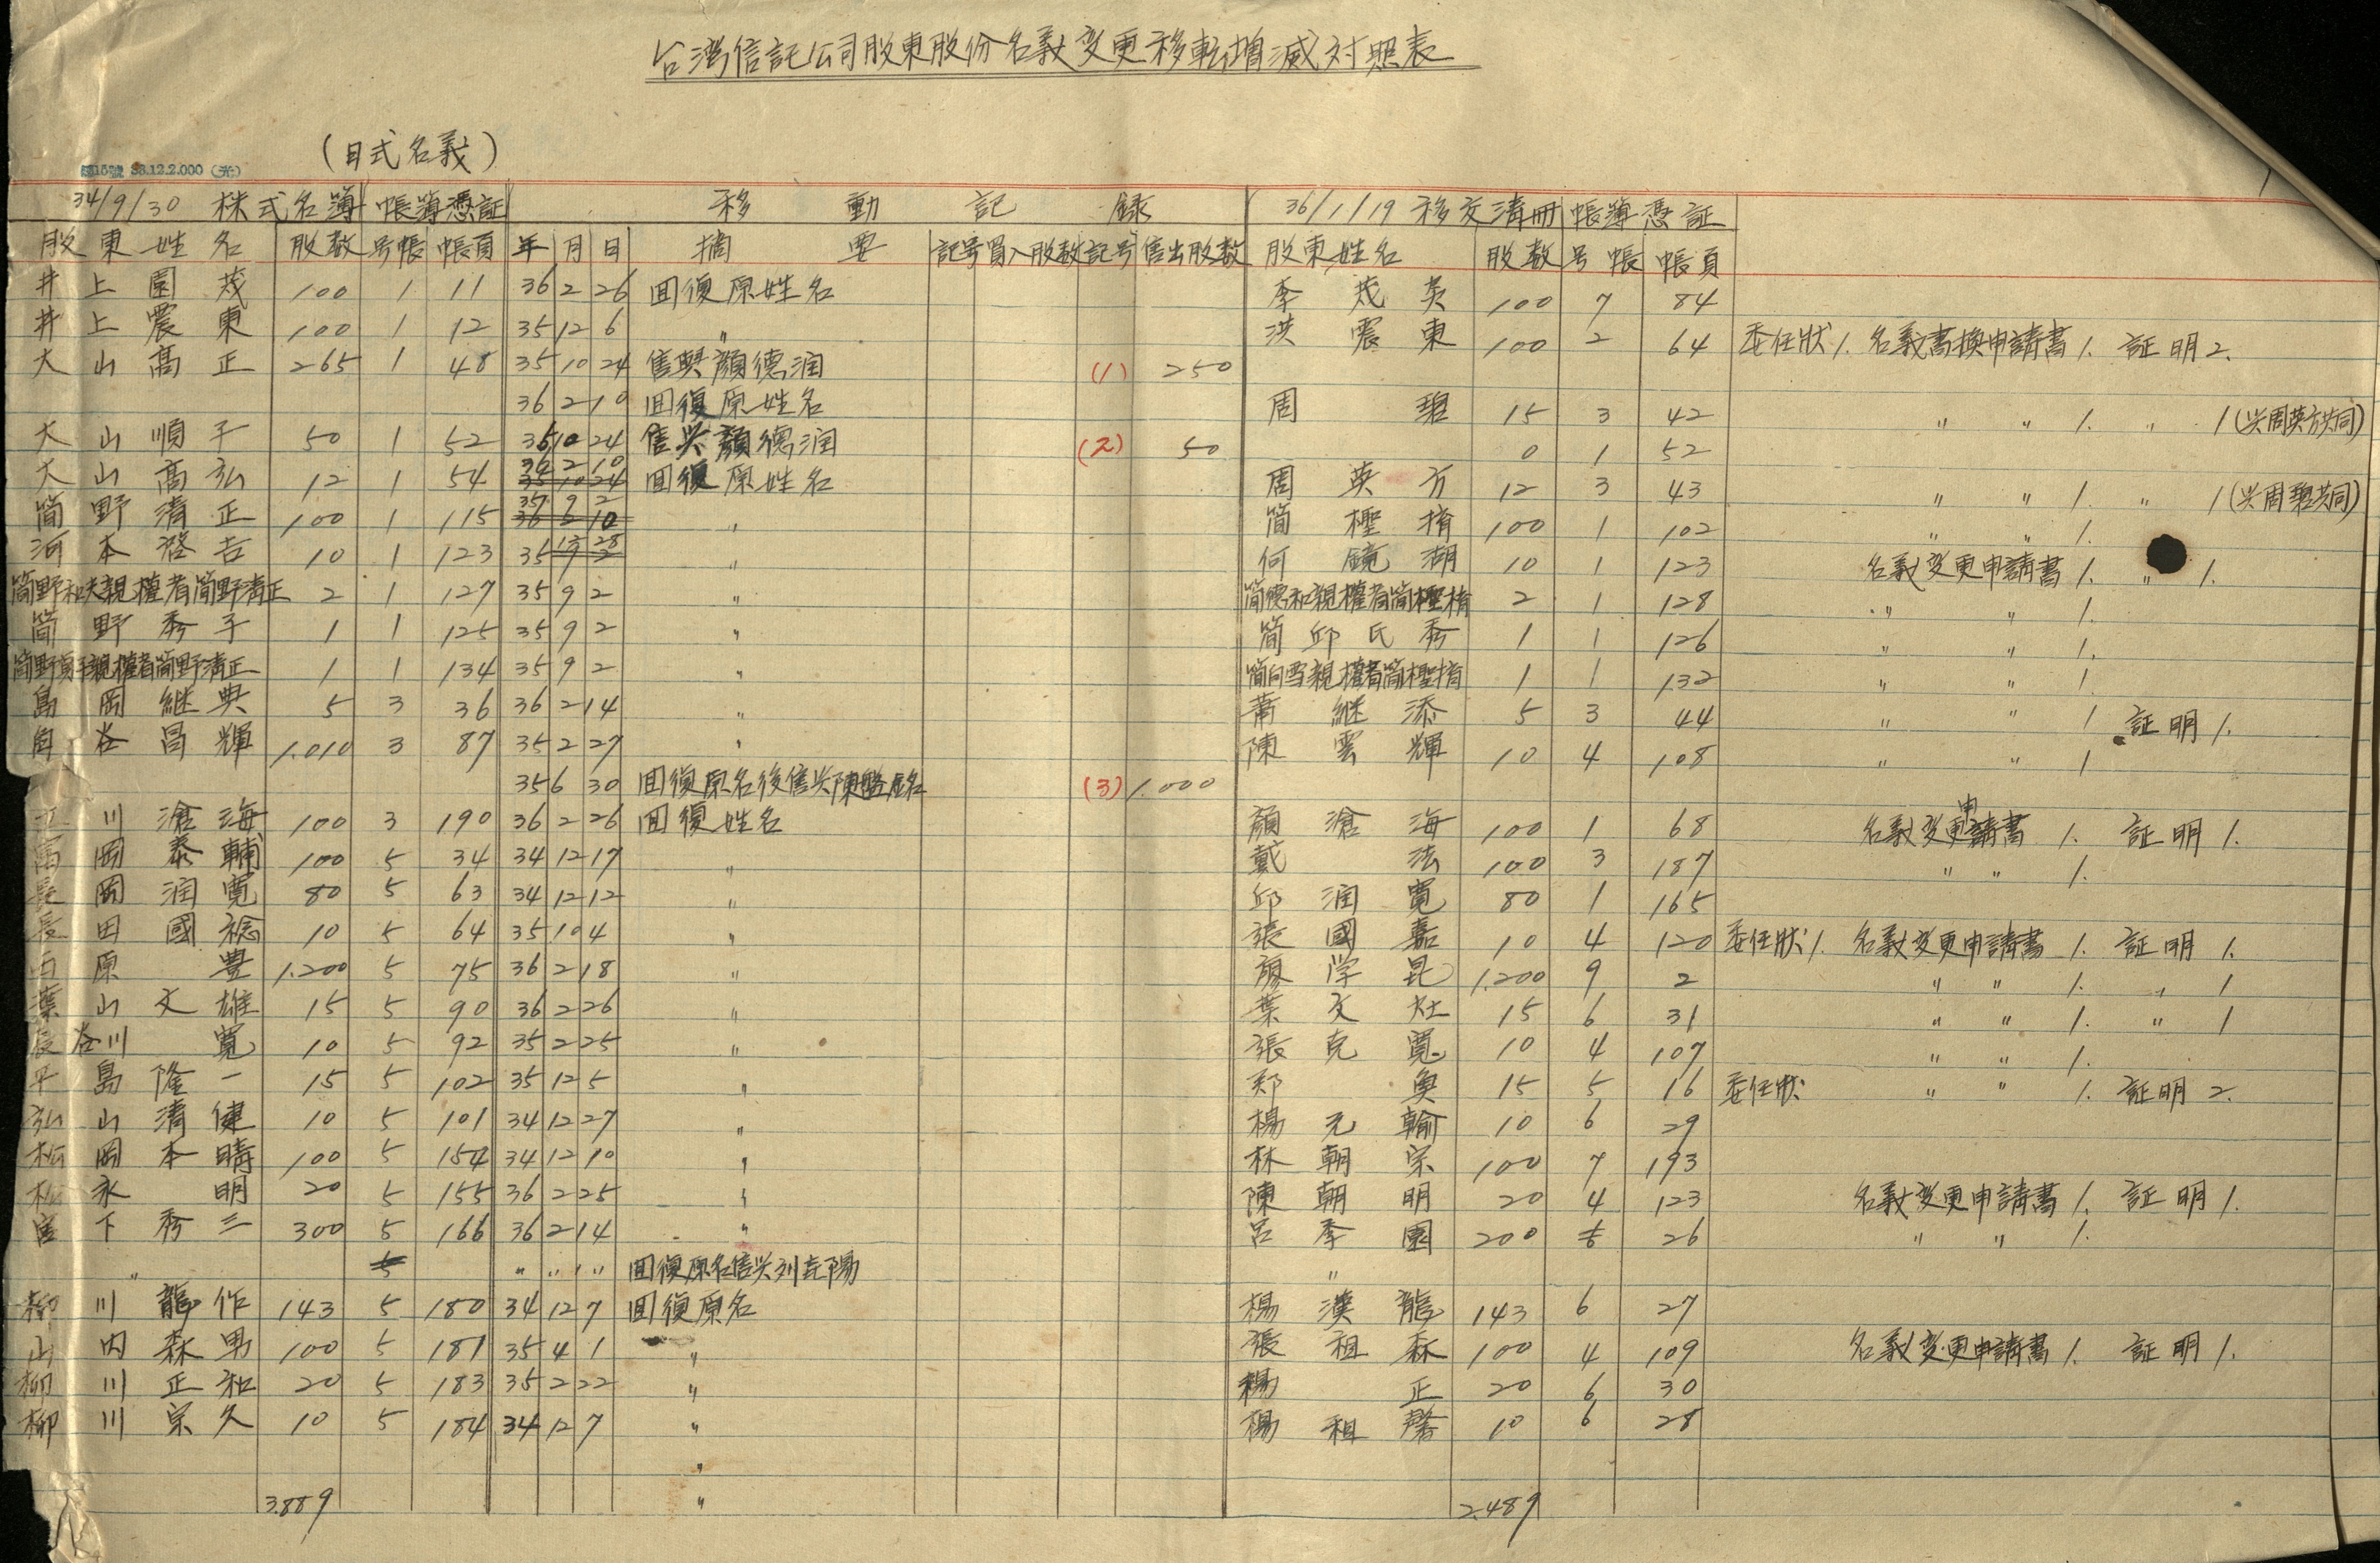 台湾信託公司股東股份名義変更移転増減対照表
(日式名義)
第15號 33.12.2.000 (光)
34/9/30 株式名簿 帳簿憑証 移動記録 36/1/19 移交清冊 帳簿憑証
股東姓名 股数 号帳 帳頁 年 月 日 摘要 記号 買入股数 記号 售出股数 股東姓名 股数 号帳 帳頁
井上園茂 100 1 11 36 2 26 回復原姓名 李茂英 100 7 84
井上震東 100 1 12 35 12 6 〃 洪震東 100 2 64 委任狀1. 名義書換申請書1. 証明2.
大山高正 265 1 48 35 10 24 售與顏德润 (1) 250
36 2 10 回復原姓名 周碧 15 3 42 〃 〃 1. 〃 1(兴周英方共同)
大山順子 50 1 52 35 10 24 售兴顏德润 (2) 50 0 1 52
大山高弘 12 1 54 36 2 10 回復原姓名 周英方 12 3 43 〃 〃 1. 〃 1(兴周碧共同)
簡野清正 100 1 115 35 9 2 〃 簡檉堉 100 1 102 〃 〃 1.
河本啓吉 10 1 123 35 12 28 〃 何鏡湖 10 1 123 名義変更申請書1. 〃 1.
簡野和夫親權者簡野清正 2 1 127 35 9 2 〃 簡德和親權者簡檉堉 2 1 128 〃 〃 1.
簡野秀子 1 1 125 35 9 2 〃 簡邱氏秀 1 1 126 〃 〃 1.
簡野貞子親權者簡野清正 1 1 134 35 9 2 〃 簡向雪親權者簡檉堉 1 1 132 〃 〃 1
島岡継典 5 3 36 36 2 14 〃 蕭継添 5 3 44 〃 〃 1 証明1.
角谷昌輝 1.010 3 87 35 2 27 〃 陳雲輝 10 4 108 〃 〃 1
35 6 30 回復原名後售兴陳 (3) 1.000
川滄海 100 3 190 36 2 26 回復姓名 顏滄海 100 1 68 名義変更申請書1. 証明1.
岡泰輔 100 5 34 34 12 17 〃 戴法 100 3 187 〃 〃 1.
長岡润寛 80 5 63 34 12 12 〃 邱润寛 80 1 165
長田國稔 10 5 64 35 10 4 〃 張國嘉 10 4 120 委任狀1. 名義変更申請書1. 証明1.
西原豊 1.200 5 75 36 2 18 〃 廖学昆 1.200 9 2 〃 〃 1. 〃 1
葉山文雄 15 5 90 36 2 26 〃 葉文灶 15 6 31 〃 〃 1. 〃 1
長谷川寛 10 5 92 35 2 25 〃 張克寛 10 4 107 〃 〃 1.
平島隆一 15 5 102 35 12 5 〃 郑奥 15 5 16 委任狀 〃 〃 1. 証明2.
弘山清健 10 5 101 34 12 27 〃 楊元翰 10 6 29
松岡本晴 100 5 154 34 12 10 〃 林朝宗 100 7 193
松永明 20 5 155 36 2 25 〃 陳朝明 20 4 123 名義変更申請書1. 証明1.
宮下秀三 300 5 166 36 2 14 〃 呂季園 200 5 26 〃 〃 1.
〃 5 〃 〃 〃 回復原名售兴刘克陽 〃
柳川龍作 143 5 180 34 12 7 回復原名 楊漢龍 143 6 27
山内森男 100 5 181 35 4 1 〃 張祖森 100 4 109 名義変更申請書1. 証明1.
柳川正和 20 5 183 35 2 22 〃 楊正 20 6 30
柳川宗久 10 5 184 34 12 7 〃 楊祖馨 10 6 28
〃
3.889 〃 2.489